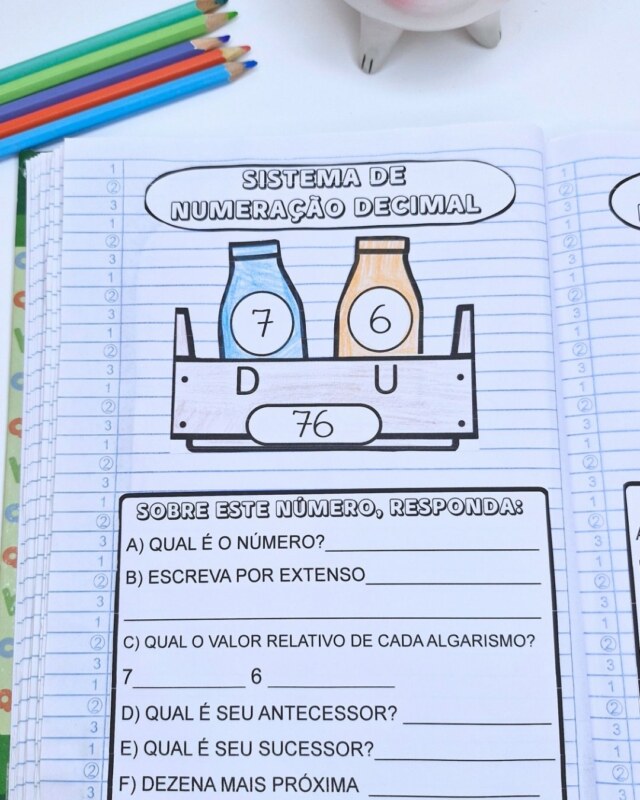 SISTEMA DE
NUMERAÇÃO DECIMAL
7 6
D U
76
SOBRE ESTE NÚMERO, RESPONDA:
A) QUAL É O NÚMERO?
B) ESCREVA POR EXTENSO
C) QUAL O VALOR RELATIVO DE CADA ALGARISMO?
7 6
D) QUAL É SEU ANTECESSOR?
E) QUAL É SEU SUCESSOR?
F) DEZENA MAIS PRÓXIMA